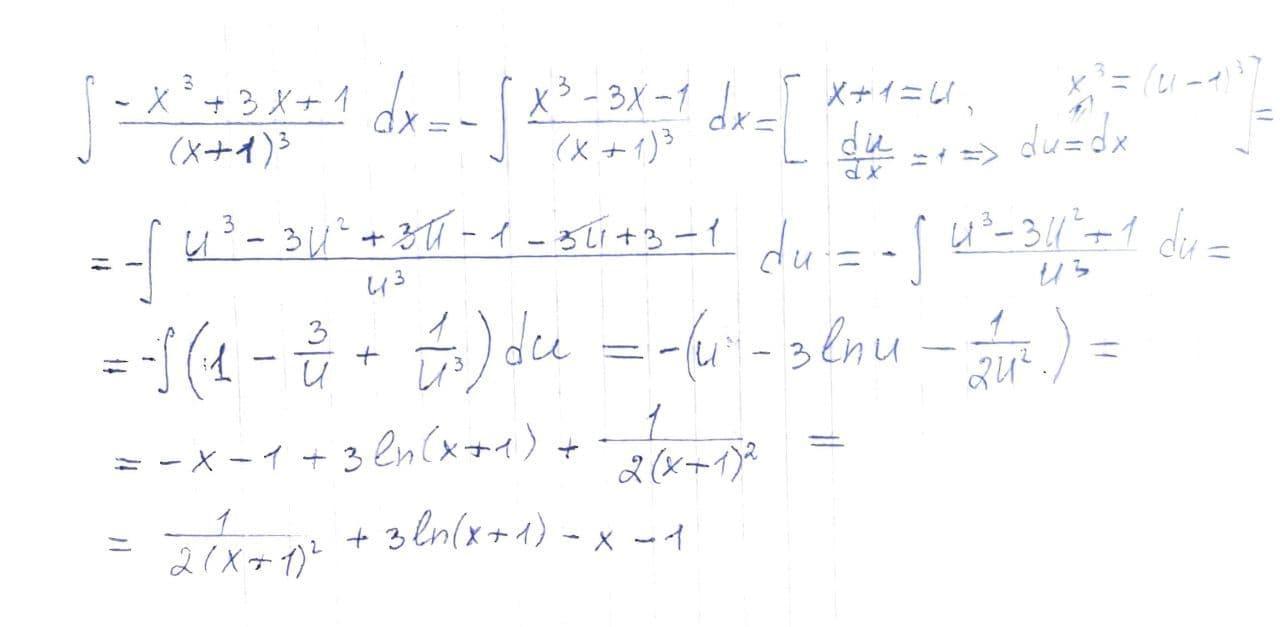 ∫ (-x³+3x+1)/(x+1)³ dx = - ∫ (x³-3x-1)/(x+1)³ dx = [x+1=u, x³=(u-1)³ ⇑ du/dx =1 => du=dx] =
= -∫ (u³-3u²+3u-1-3u+3-1)/u³ du = -∫ (u³-3u²+1)/u³ du =
= -∫(1 - 3/u + 1/u³) du = -(u - 3lnu - 1/2u².) =
= -x-1+3ln(x+1) + 1/2(x+1)² =
= 1/2(x+1)² + 3ln(x+1) - x - 1